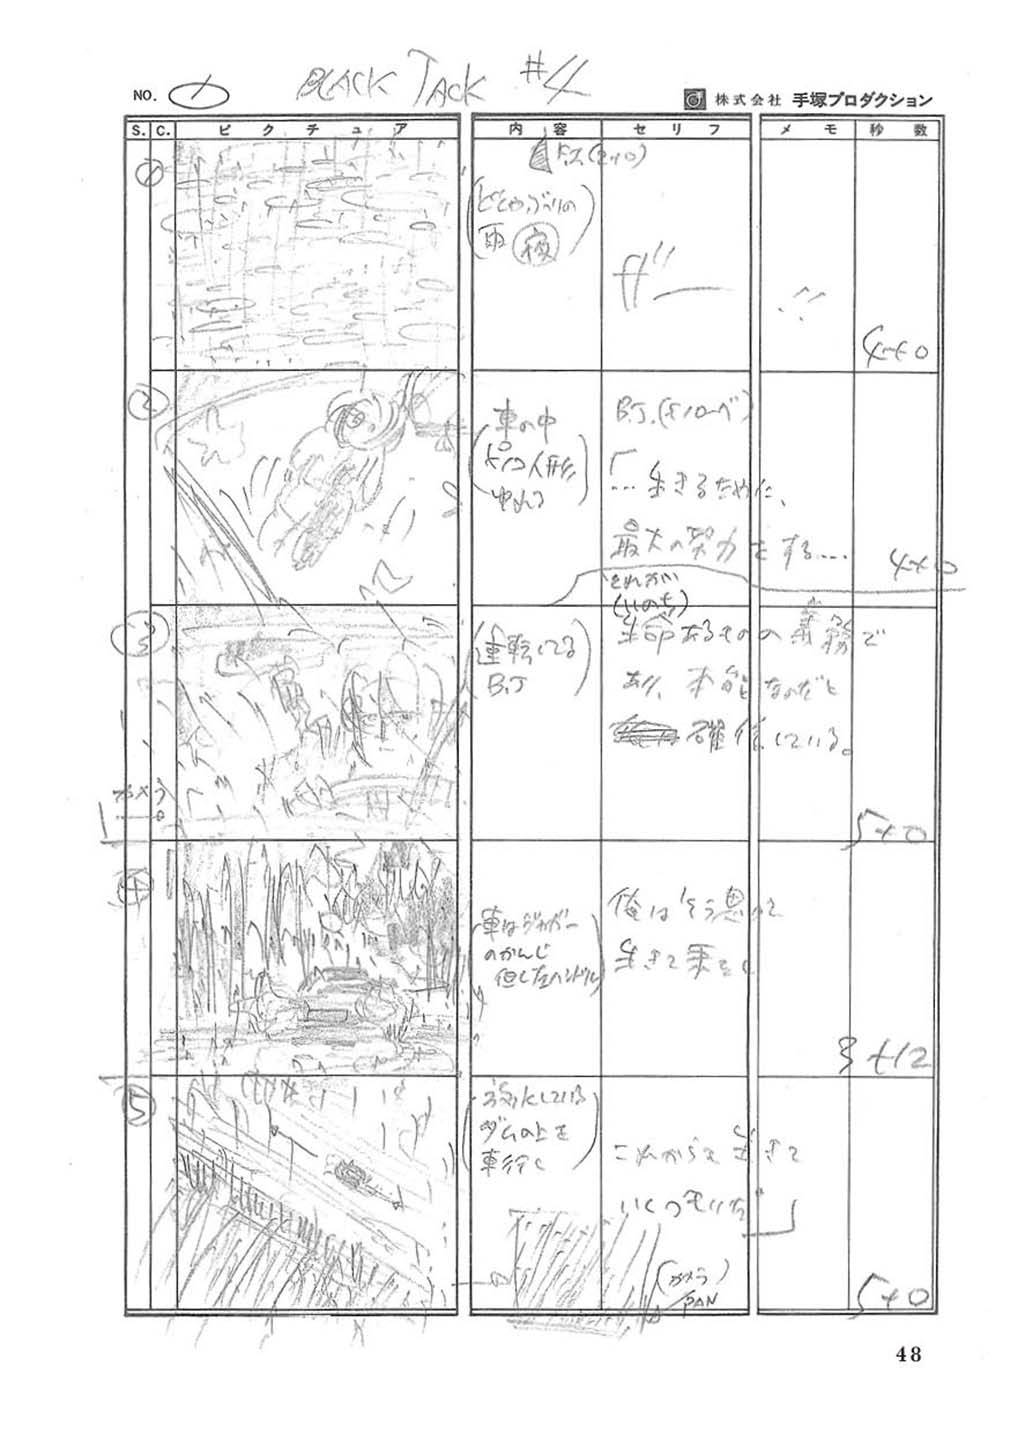 BLACK JACK #4
NO. 1
株式会社 手塚プロダクション
S. C. ピクチュア 内容 セリフ メモ 秒数
①
F.I.(2+0)
(どしゃぶりの
雨 夜)
4+0
②
車の中
(ピノコ人形
ゆれる)
B.J.(モノローグ)
「…生きるために、
最大の努力をする…
4+0
それが
(いのち)
③
(運転してる
B.J)
生命あるものの義務で
あり、本能なのだと
確信している。
カメラ
5+0
④
車はジャガー
のかんじ
但し左ハンドル)
俺はそう思って
生きて来たし
3+12
⑤
(放水している
ダムの上を
車行く)
これからも生きて
いくつもりだ」
(カメラ)
PAN
5+0
48